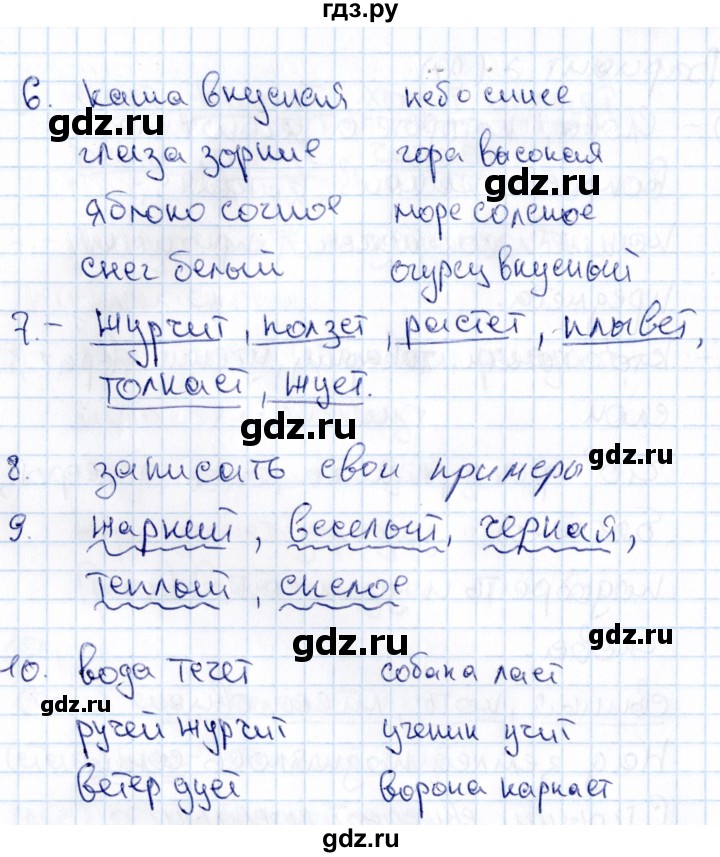 гдз.ру
6. каша вкусная небо синее
gdz.ru
глаза зоркие гора высокая
gdz.ru
яблоко сочное море соленое
снег белый огурец вкусный
7.- журчит, ползет, растет, плывет,
gdz.ru gdz.ru
толкает, жует.
gdz.ru
8. записать свои примеры
gdz.ru
9. жаркий, веселый, черная,
теплый, спелое
gdz.ru
10. вода течет собака лает
gdz.ru
ручей журчит ученик учит
ветер дует ворона каркает
gdz.ru gdz.ru
gdz.ru